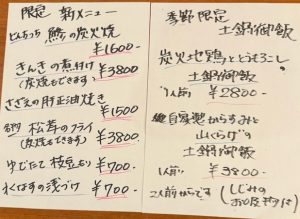 限定 新メニュー
どんちっち 鯵の炭火焼
¥1600-
きんきの煮付け ¥3800
(炭焼もできます)
さざえの肝正油焼き
¥1500
名物 松茸のフライ
(炭焼もできます) ¥3800
ゆでたて 枝豆 ¥700-
水なすの浅づけ ¥700-
季節限定
土鍋御飯
炭火地鶏ととうもろこし
土鍋御飯
1人前 ¥2800-
自家製からすみと
山くらげの
土鍋御飯
1人前 ¥3800-
二人前からです (しじみの
お吸物付